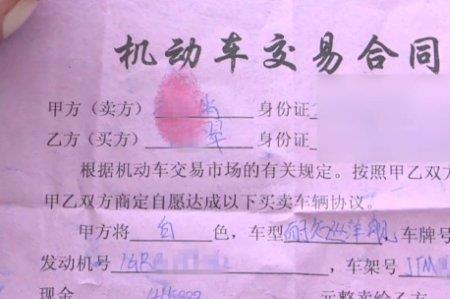 机动车交易合同
甲方（卖方） 身份证
乙方（买方） 翠 身份证
根据机动车交易市场的有关规定。按照甲乙双方
甲乙双方商定自愿达成以下买卖车辆协议。
甲方将 白 色，车型 车牌号
发动机号 1GR 车架号 JTM
现金 元整卖给乙方